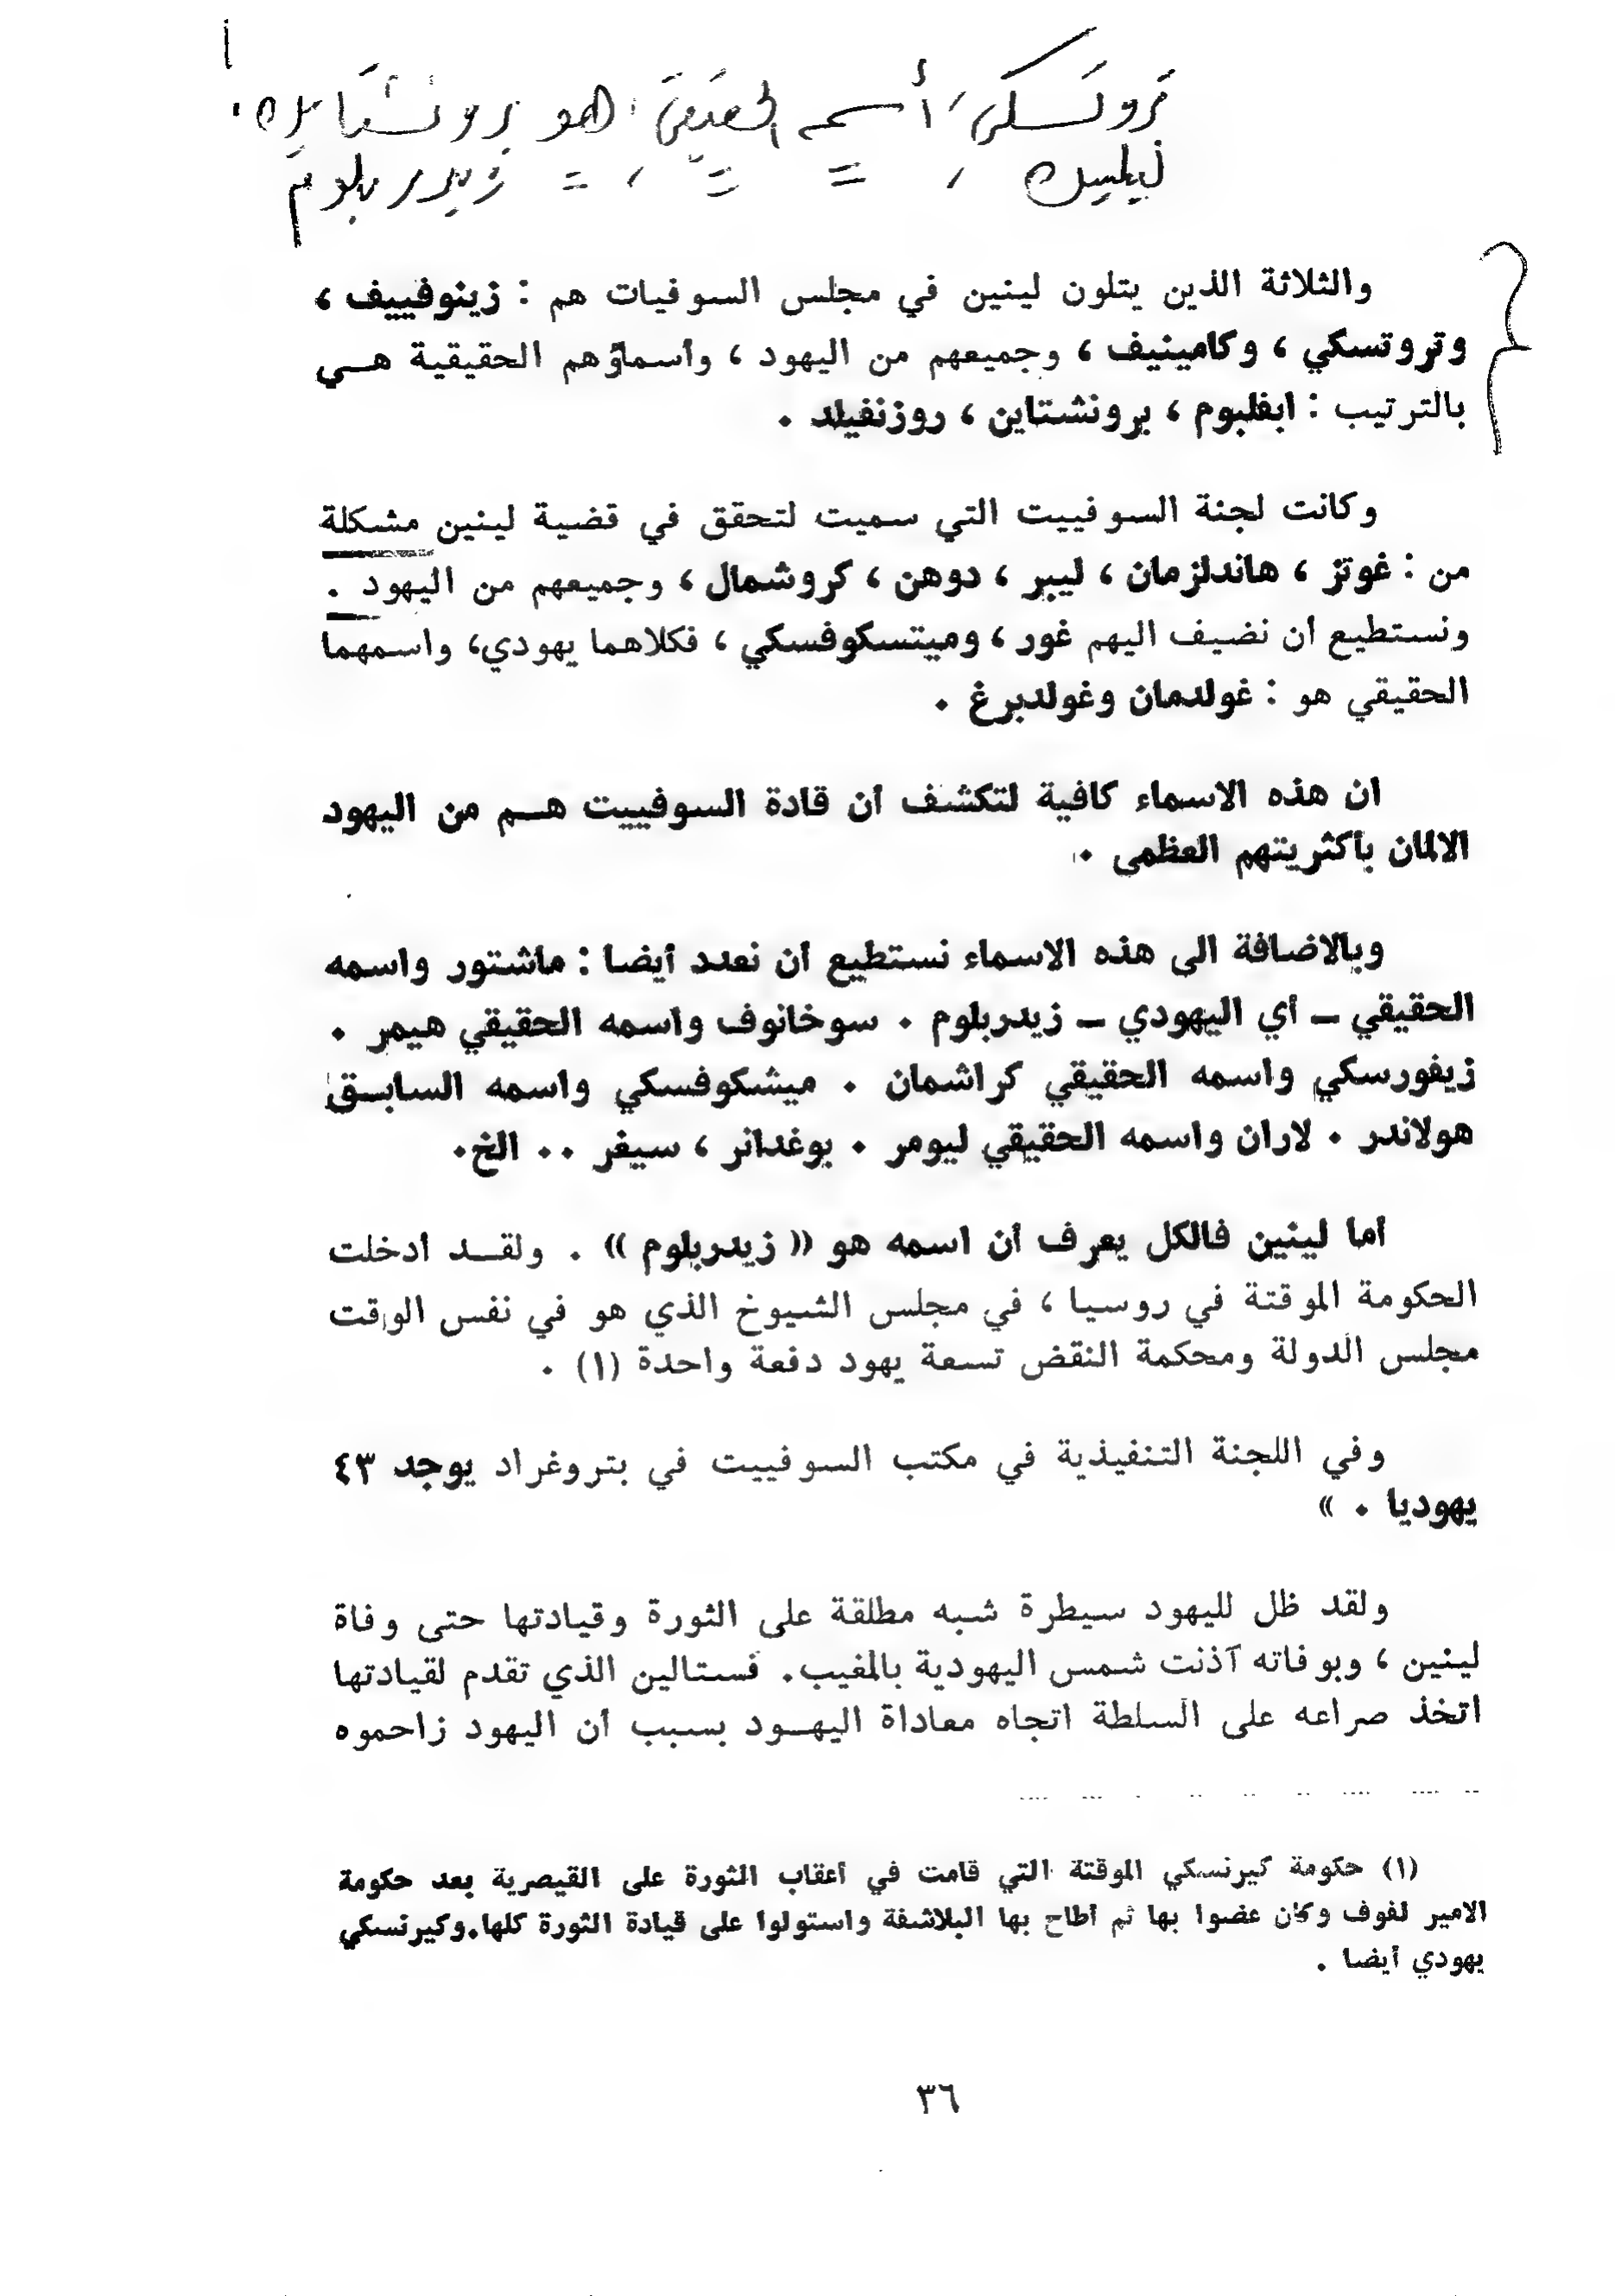 تروتسكي أسمه الحقيقي هو برونشتاين.
زيدر بلوم
والثلاثة الذين يتلون لينين في مجلس السوفيات هم : زينوفييف ،
وتروتسكي ، وكامينيف ، وجميعهم من اليهود ، وأسماؤهم الحقيقية هـي
بالترتيب : ابفلبوم ، برونشتاين ، روزنفيلد .
وكانت لجنة السوفييت التي سميت لتحقق في قضية لينين مشكلة
من : غوتز ، هاندلزمان ، ليبر ، دوهن ، كروشمال ، وجميعهم من اليهود .
ونستطيع أن نضيف اليهم غور ، وميتسكوفسكي ، فكلاهما يهودي، واسمهما
الحقيقي هو : غولدمان وغولدبرغ .
ان هذه الاسماء كافية لتكشف أن قادة السوفييت هـم من اليهود
الالمان بأكثريتهم العظمى .
وبالاضافة الى هذه الاسماء نستطيع أن نعدد أيضا : ماشتور واسمه
الحقيقي ــ أي اليهودي ــ زيدربلوم . سوخانوف واسمه الحقيقي هيمر .
زيفورسكي واسمه الحقيقي كراشمان . ميشكوفسكي واسمه السابـق
هولاندر . لاران واسمه الحقيقي ليومر . بوغدانر ، سيفر .. الخ.
أما لينين فالكل يعرف أن اسمه هو « زيدربلوم » . ولقـد أدخلت
الحكومة الموقتة في روسيا ، في مجلس الشيوخ الذي هو في نفس الوقت
مجلس الدولة ومحكمة النقض تسعة يهود دفعة واحدة (١) .
وفي اللجنة التنفيذية في مكتب السوفييت في بتروغراد يوجد ٤٣
يهوديا . »
ولقد ظل لليهود سيطرة شبه مطلقة على الثورة وقيادتها حتى وفاة
لينين ، وبوفاته آذنت شمس اليهودية بالمغيب. فستالين الذي تقدم لقيادتها
اتخذ صراعه على السلطة اتجاه معاداة اليهـود بسبب أن اليهود زاحموه
(١) حكومة كيرنسكي الموقتة التي قامت في أعقاب الثورة على القيصرية بعد حكومة
الامير لفوف وكان عضوا بها ثم أطاح بها البلاشفة واستولوا على قيادة الثورة كلها.وكيرنسكي
يهودي أيضا .
٣٦